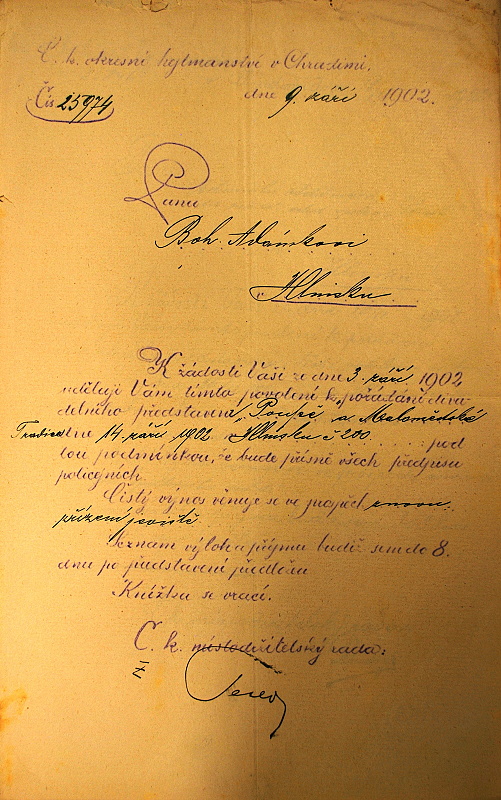 C. k. okresní hejtmanství v Chrudimi.
Čís 25974
dne 9. září 1902.
Panu
Boh. Adámkovi
v Hlinsku
K žádosti Vaší ze dne 3. září 1902
uděluji Vám tímto povolení k pořádání diva-
delního představení „ a Maloměstské
Tradice dne 14. září 1902 v Hlinsku č 200 pod
tou podmínkou, že bude přísně všech předpisů
policejních.
Čistý výnos věnuje se ve prospěch
přízení jeviště
Seznam výloh a příjmů budiž sem do 8.
dnů po představení předložen
Knížka se vrací.
C. k. místodržitelský rada:
Ž